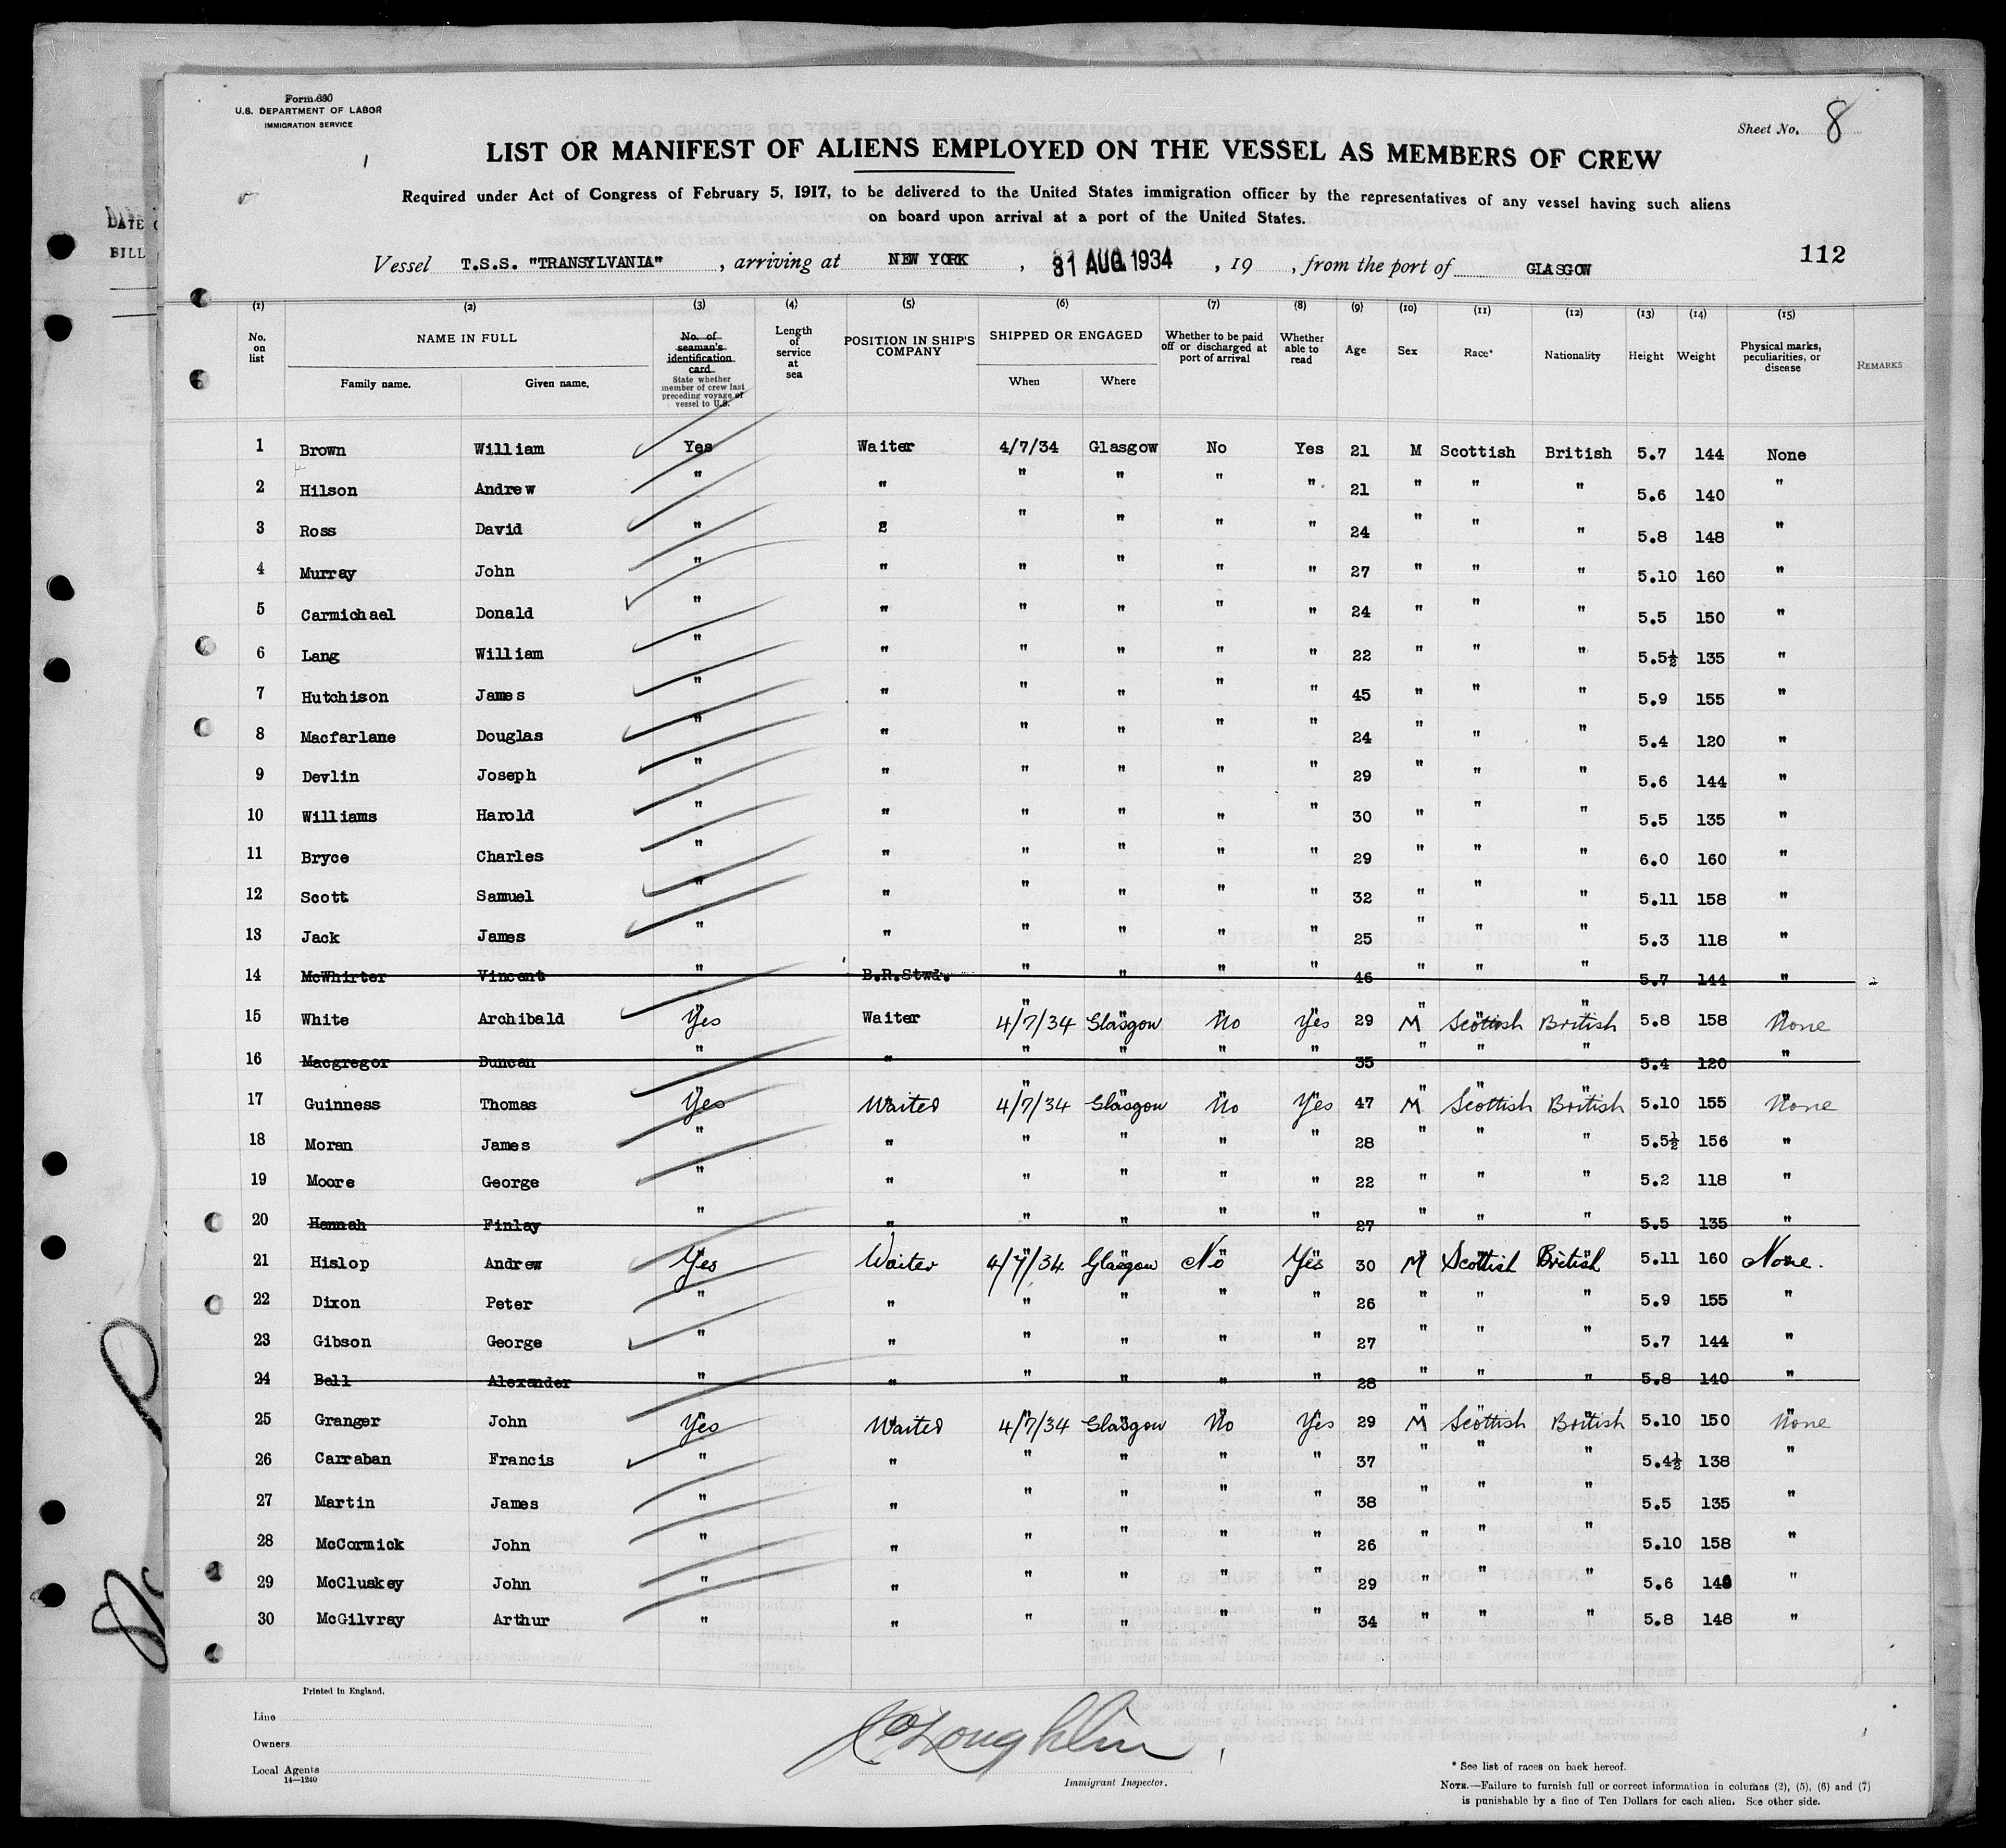 Form 680
U.S. DEPARTMENT OF LABOR
IMMIGRATION SERVICE
Sheet No. 8
LIST OR MANIFEST OF ALIENS EMPLOYED ON THE VESSEL AS MEMBERS OF CREW
Required under Act of Congress of February 5, 1917, to be delivered to the United States immigration officer by the representatives of any vessel having such aliens
on board upon arrival at a port of the United States.
112
Vessel T.S.S. "TRANSYLVANIA", arriving at NEW YORK, 31 AUG 1934, 19 , from the port of GLASGOW
(1) (2) (3) (4) (5) (6) (7) (8) (9) (10) (11) (12) (13) (14) (15)
No. on list NAME IN FULL Family name. Given name. No. of seaman's identification card. State whether member of crew last preceding voyage of vessel to U.S. Length of service at sea POSITION IN SHIP'S COMPANY SHIPPED OR ENGAGED When Where Whether to be paid off or discharged at port of arrival Whether able to read Age Sex Race* Nationality Height Weight Physical marks, peculiarities, or disease REMARKS
1 Brown William Yes Waiter 4/7/34 Glasgow No Yes 21 M Scottish British 5.7 144 None
2 Hilson Andrew " " " " " " 21 " " " 5.6 140 "
3 Ross David " " " " " " 24 " " " 5.8 148 "
4 Murray John " " " " " " 27 " " " 5.10 160 "
5 Carmichael Donald " " " " " " 24 " " " 5.5 150 "
6 Lang William " " " " " " 22 " " " 5.5½ 135 "
7 Hutchison James " " " " " " 45 " " " 5.9 155 "
8 Macfarlane Douglas " " " " " " 24 " " " 5.4 120 "
9 Devlin Joseph " " " " " " 29 " " " 5.6 144 "
10 Williams Harold " " " " " " 30 " " " 5.5 135 "
11 Bryce Charles " " " " " " 29 " " " 6.0 160 "
12 Scott Samuel " " " " " " 32 " " " 5.11 158 "
13 Jack James " " " " " " 25 " " " 5.3 118 "
14 McWhirter Vincent " B.R.Stwd. " " " " 46 " " " 5.7 144 "
15 White Archibald Yes Waiter 4/7/34 Glasgow No Yes 29 M Scottish British 5.8 158 None
16 Macgregor Duncan " " " " " " 35 " " " 5.4 120 "
17 Guinness Thomas Yes Waiter 4/7/34 Glasgow No Yes 47 M Scottish British 5.10 155 None
18 Moran James " " " " " " 28 " " " 5.5½ 156 "
19 Moore George " " " " " " 22 " " " 5.2 118 "
20 Hannah Finlay " " " " " " 27 " " " 5.5 135 "
21 Hislop Andrew Yes Waiter 4/7/34 Glasgow No Yes 30 M Scottish British 5.11 160 None.
22 Dixon Peter " " " " " " 26 " " " 5.9 155 "
23 Gibson George " " " " " " 27 " " " 5.7 144 "
24 Bell Alexander " " " " " " 28 " " " 5.8 140 "
25 Granger John Yes Waiter 4/7/34 Glasgow No Yes 29 M Scottish British 5.10 150 None
26 Carraban Francis " " " " " " 37 " " " 5.4½ 138 "
27 Martin James " " " " " " 38 " " " 5.5 135 "
28 McCormick John " " " " " " 26 " " " 5.10 158 "
29 McCluskey John " " " " " " 29 " " " 5.6 "
30 McGilvray Arthur " " " " " " 34 " " " 5.8 148 "
Printed in England.
Line
Owners
Local Agents
14—1240
McLoughlin
Immigrant Inspector.
* See list of races on back hereof.
NOTE.—Failure to furnish full or correct information in columns (2), (5), (6) and (7)
is punishable by a fine of Ten Dollars for each alien. See other side.